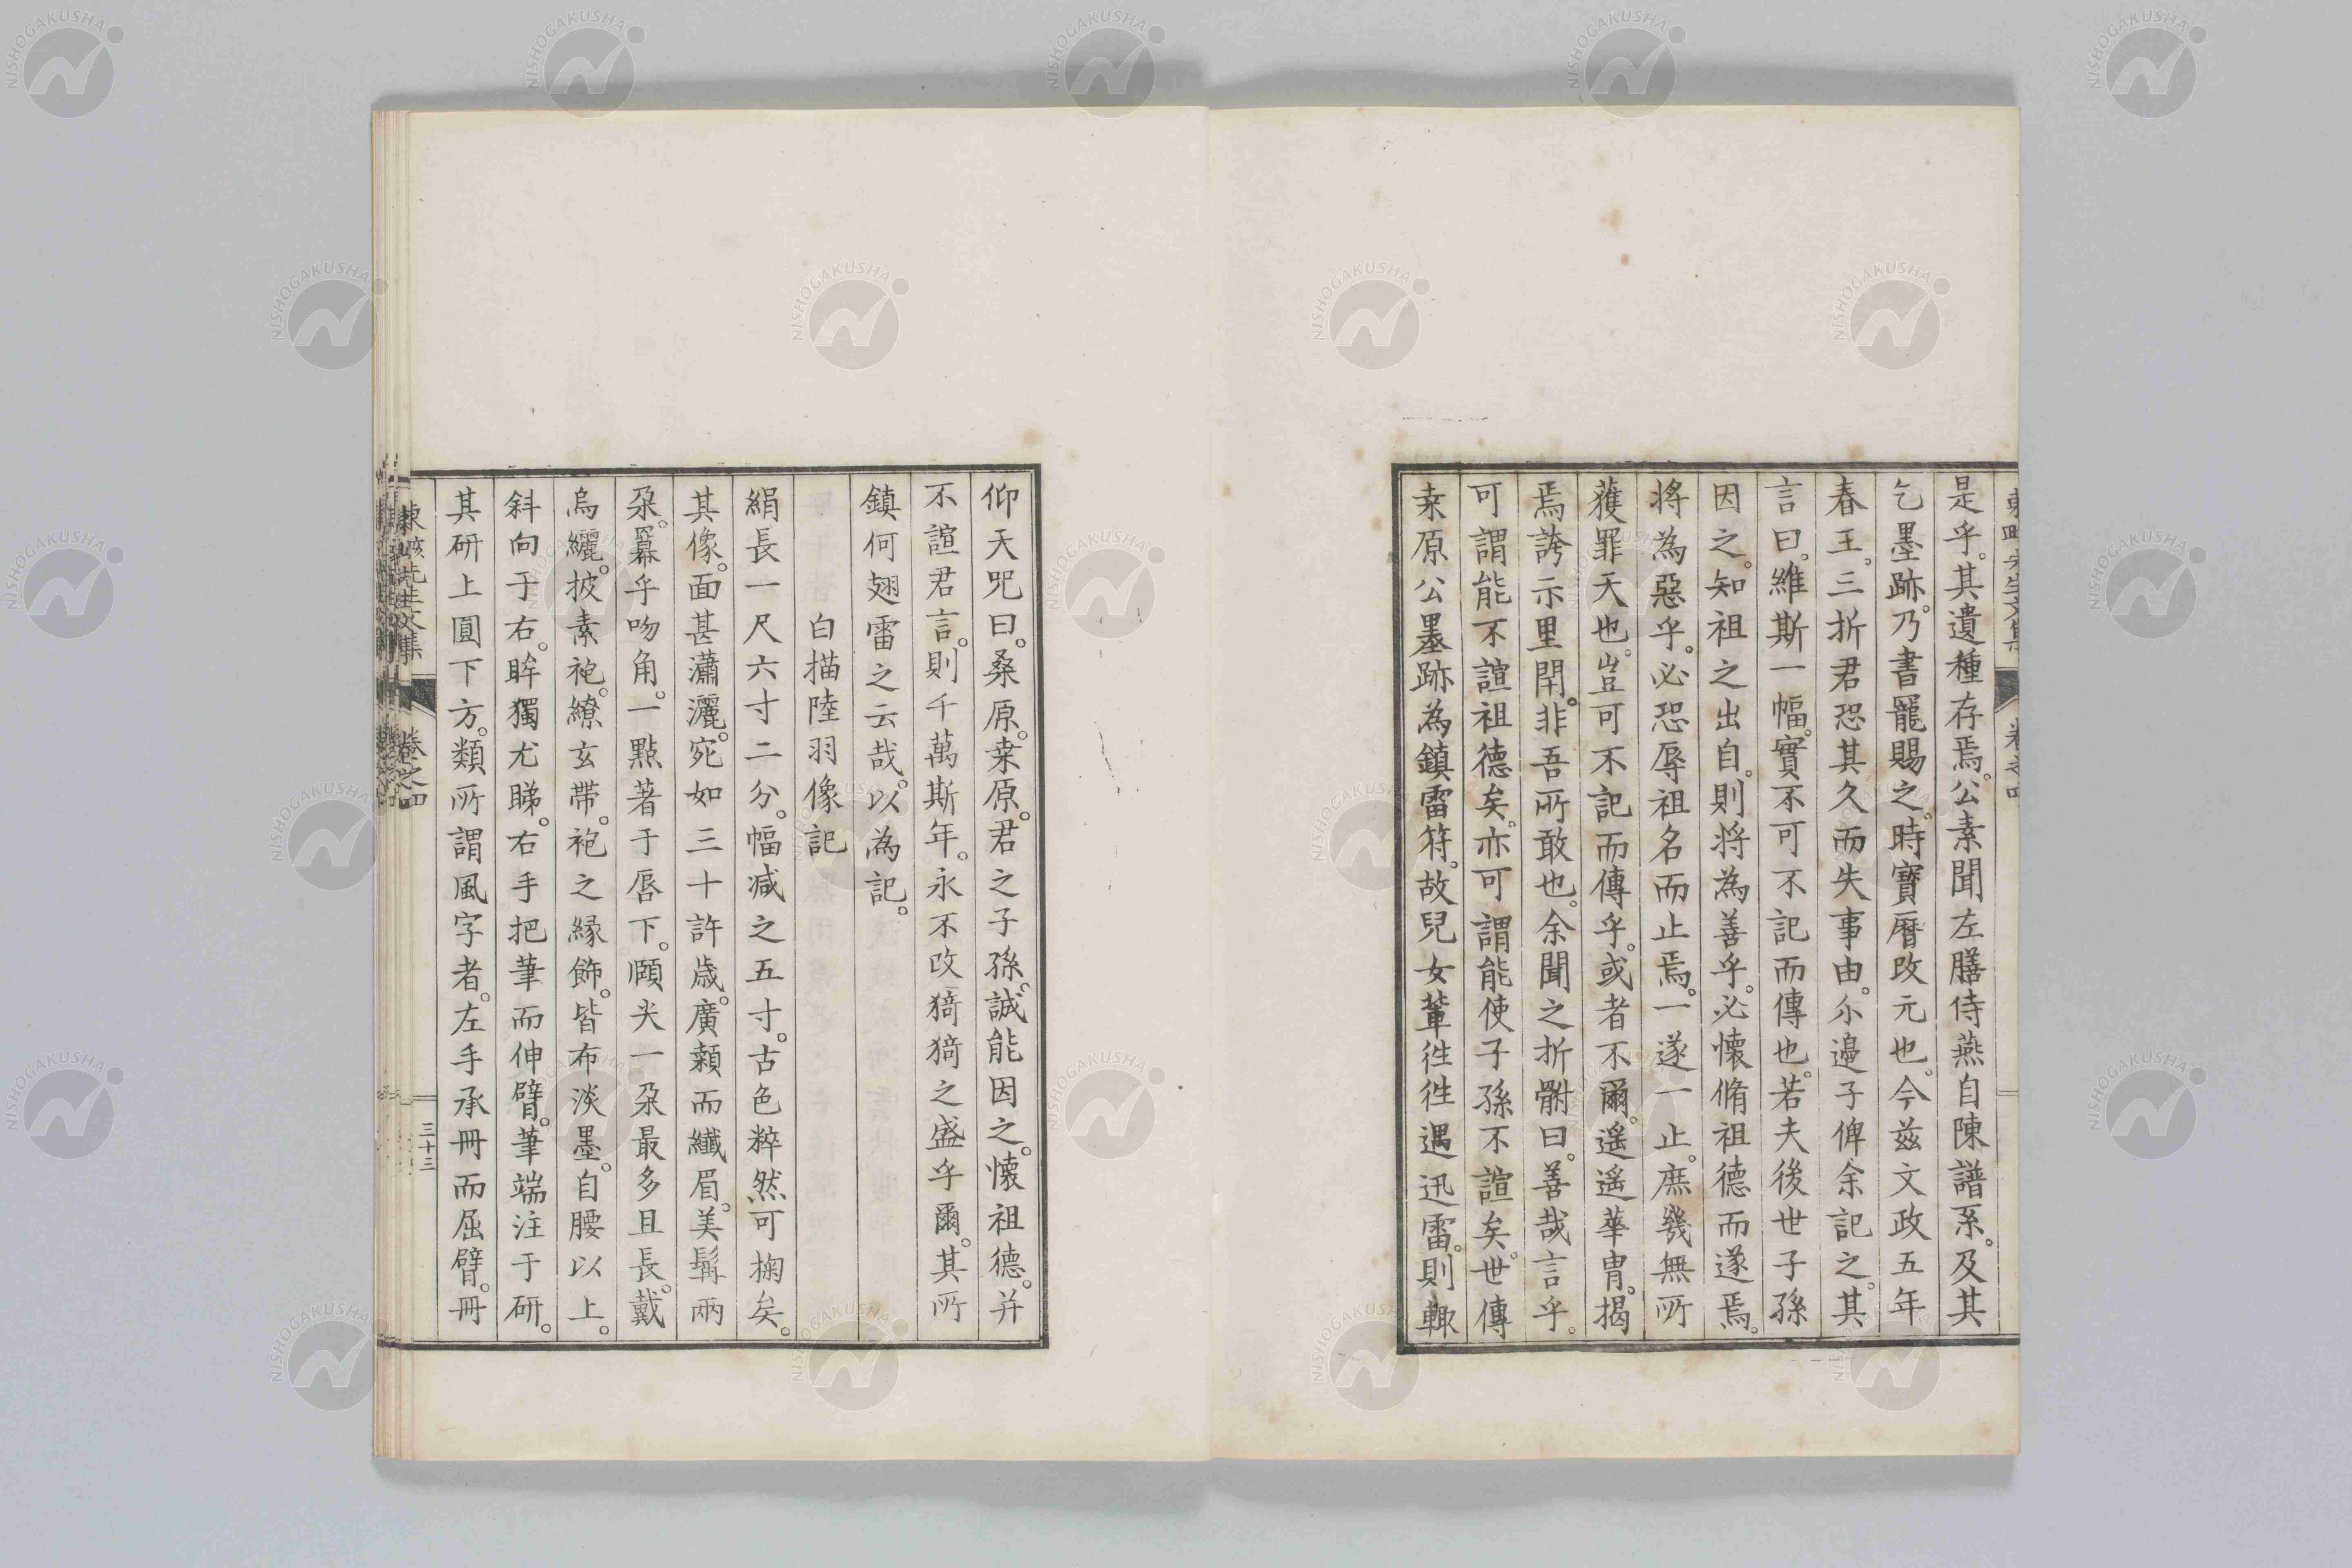 是乎。其遺種存焉。公素聞左膳侍燕自陳譜系。及其
乞墨跡。乃書寵賜之。時寶曆改元也。今茲文政五年
春王。三折君恐其久而失事由。尒邉子俾余記之。其
言曰。維斯一幅。實不可不記而傳也。若夫後世子孫
因之。知祖之出自。則將為善乎。必懷脩祖德而遂焉。
將為惡乎。必恐辱祖名而止焉。一遂一止。庶幾無所
獲罪天也。豈可不記而傳乎。或者不爾。遥遥華胄。揭
焉誇示里閈。非吾所敢也。余聞之折髀曰。善哉言乎。
可謂能不諠祖德矣。亦可謂能使子孫不諠矣。世傳
桒原公墨跡為鎮雷符。故兒女輩徃徃遇迅雷。則輙
仰天咒曰。桑原。桒原。君之子孫。誠能因之。懐祖德。并
不諠君言。則千萬斯年。永不改猗猗之盛乎爾。其所
鎮何翅雷之云哉。以為記。
白描陸羽像記
絹長一尺六寸二分。幅減之五寸。古色粹然可掬矣。
其像。面甚瀟灑。宛如三十許歲。廣顙而纖眉。美髯兩
朶。冪乎吻角。一點著于唇下。頤尖一朶最多且長。戴
烏纚。披素袍。繚玄帶。袍之縁飾。皆布淡墨。自腰以上。
斜向于右。眸獨尤睇。右手把筆而伸臂。筆端注于研。
其研上圓下方。類所謂風字者。左手承冊而屈臂。冊
卷之四
三十三
NISHOGAKUSHA